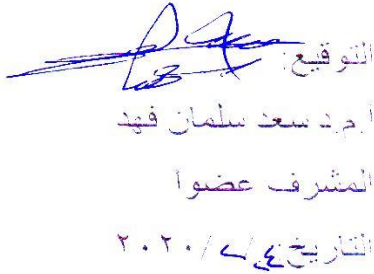 التوقيع:
أ.م.د سعد سلمان فهد
المشرف عضوا
التاريخ: ٤/ /٢٠٢٠